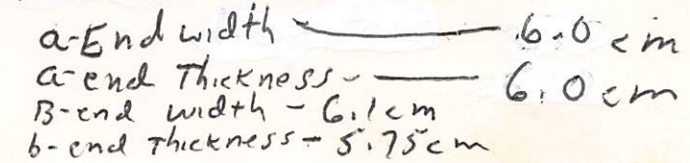 a-End width — 6.0 cm
a-end Thickness - — 6.0 cm
B-end width - 6.1cm
b-end Thickness - 5.75cm